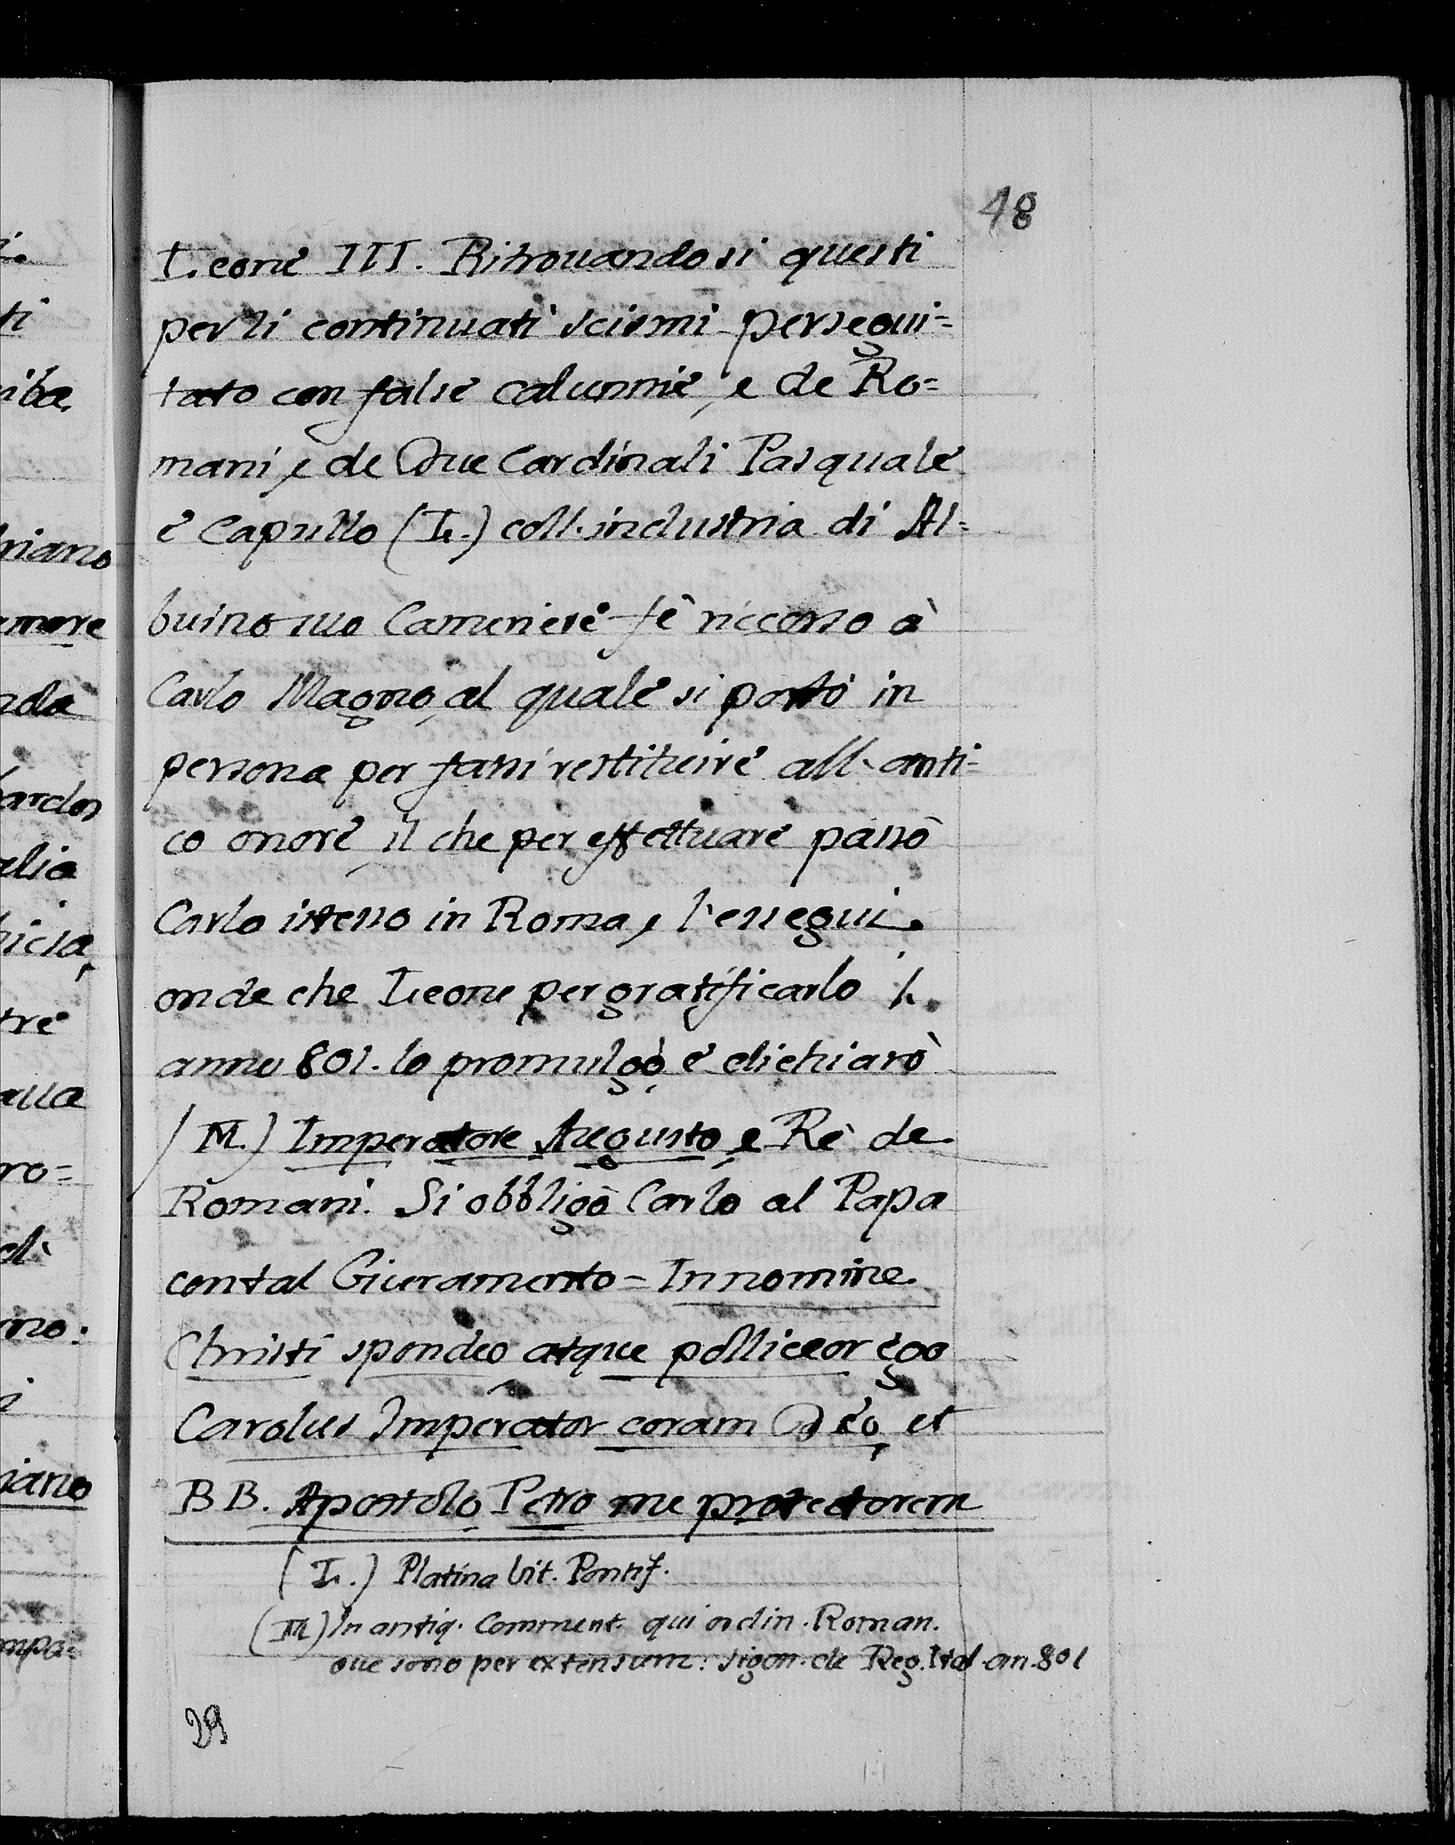 48
Leone III. Ritrouandosi questi
per li continuati scismi persegui=
tato con false calunnie, e de Ro=
mani, e de Due Cardinali Pasquale
e Capullo (L.) coll'industria di Al=
buino suo Cameriere fè riccorso à
Carlo Magno, al quale si portò in
persona per farsi restituire all'anti=
co onore, il che per effettuare passò
Carlo istesso in Roma, e l'esseguì.
onde che Leone per gratificarlo l'
anno 801. lo promulgò, e dichiarò
(M.) Imperatore Augusto, e Rè de
Romani. Si obbligò Carlo al Papa
con tal Giuramento = In nomine
Christi spondeo atque polliceor ego
Carolus Imperator coram Deo, et
BB. Apostolo Petro me protectorem
(L.) Platina Vit. Pontif.
(M) In antiq. Comment. qui ordin. Roman.
oue sono per extensum: Sigon. de Reg. Ital. an. 801
29
riano
amore
nda
bardos
alia
tre
alla
ro=
mo:
riano
mpa=